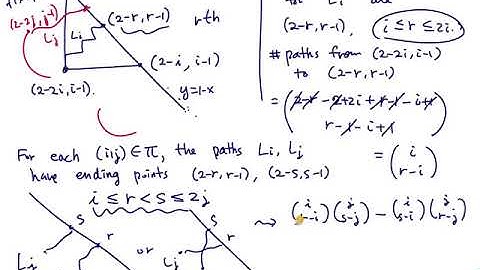 (2-2j, j-1)
(2-r, r-1) rth
Lj
Li
(2-i, i-1)
(2-2i, i-1).
y=1-x
Li are
(2-r, r-1), i ≤ r ≤ 2i.
# paths from (2-2i, i-1)
to (2-r, r-1)
= (2-r-2+2i+r-1-i+1
r-1-i+1)
= (i
r-i)
For each (i,j) ∈ π, the paths Li, Lj
have ending points (2-r, r-1), (2-s, s-1)
i ≤ r < s ≤ 2j
s
r
Li
or
s
r
Lj
⇝ (i r-i)(j s-j) - (i s-i)(j r-j)